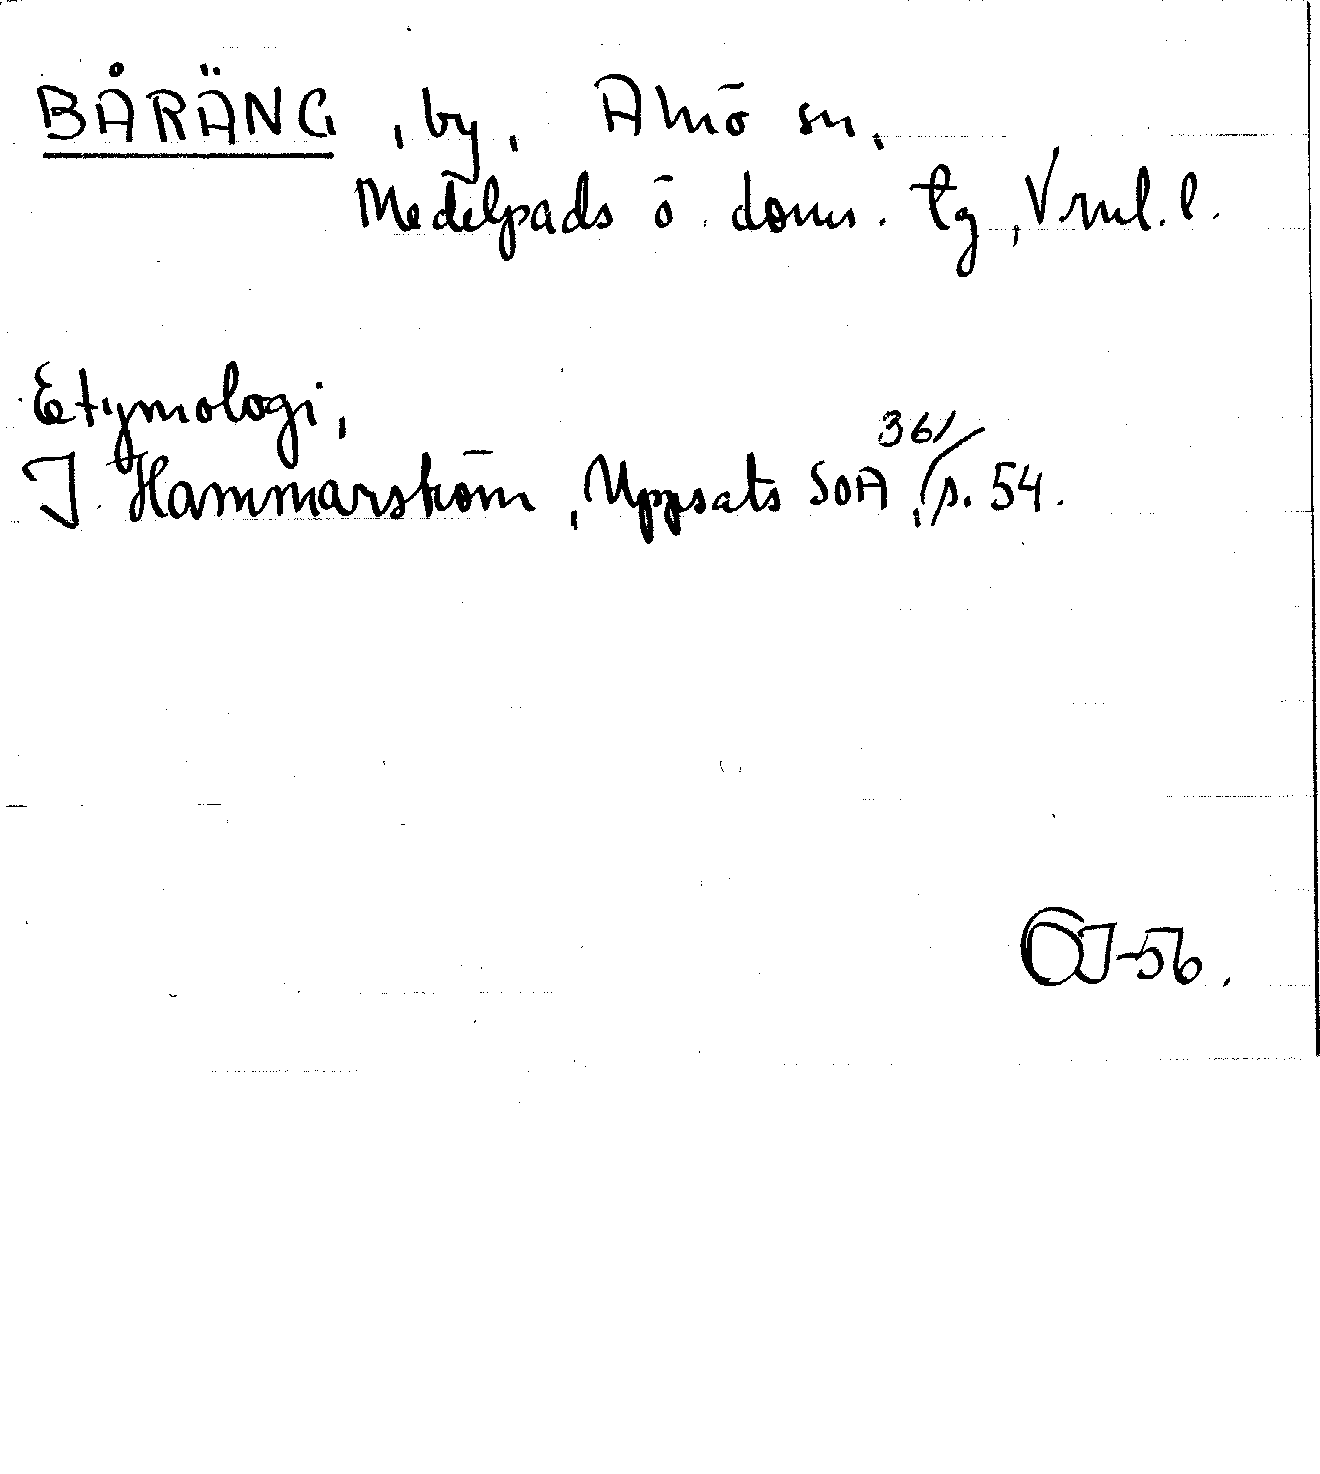 BÅRÄNG, by, Alnö sn,
Medelpads ö. doms. tg, Vrnl. l.
Etymologi,
J. Hammarström, Uppsats SOA, 361/ p. 54.
-56.